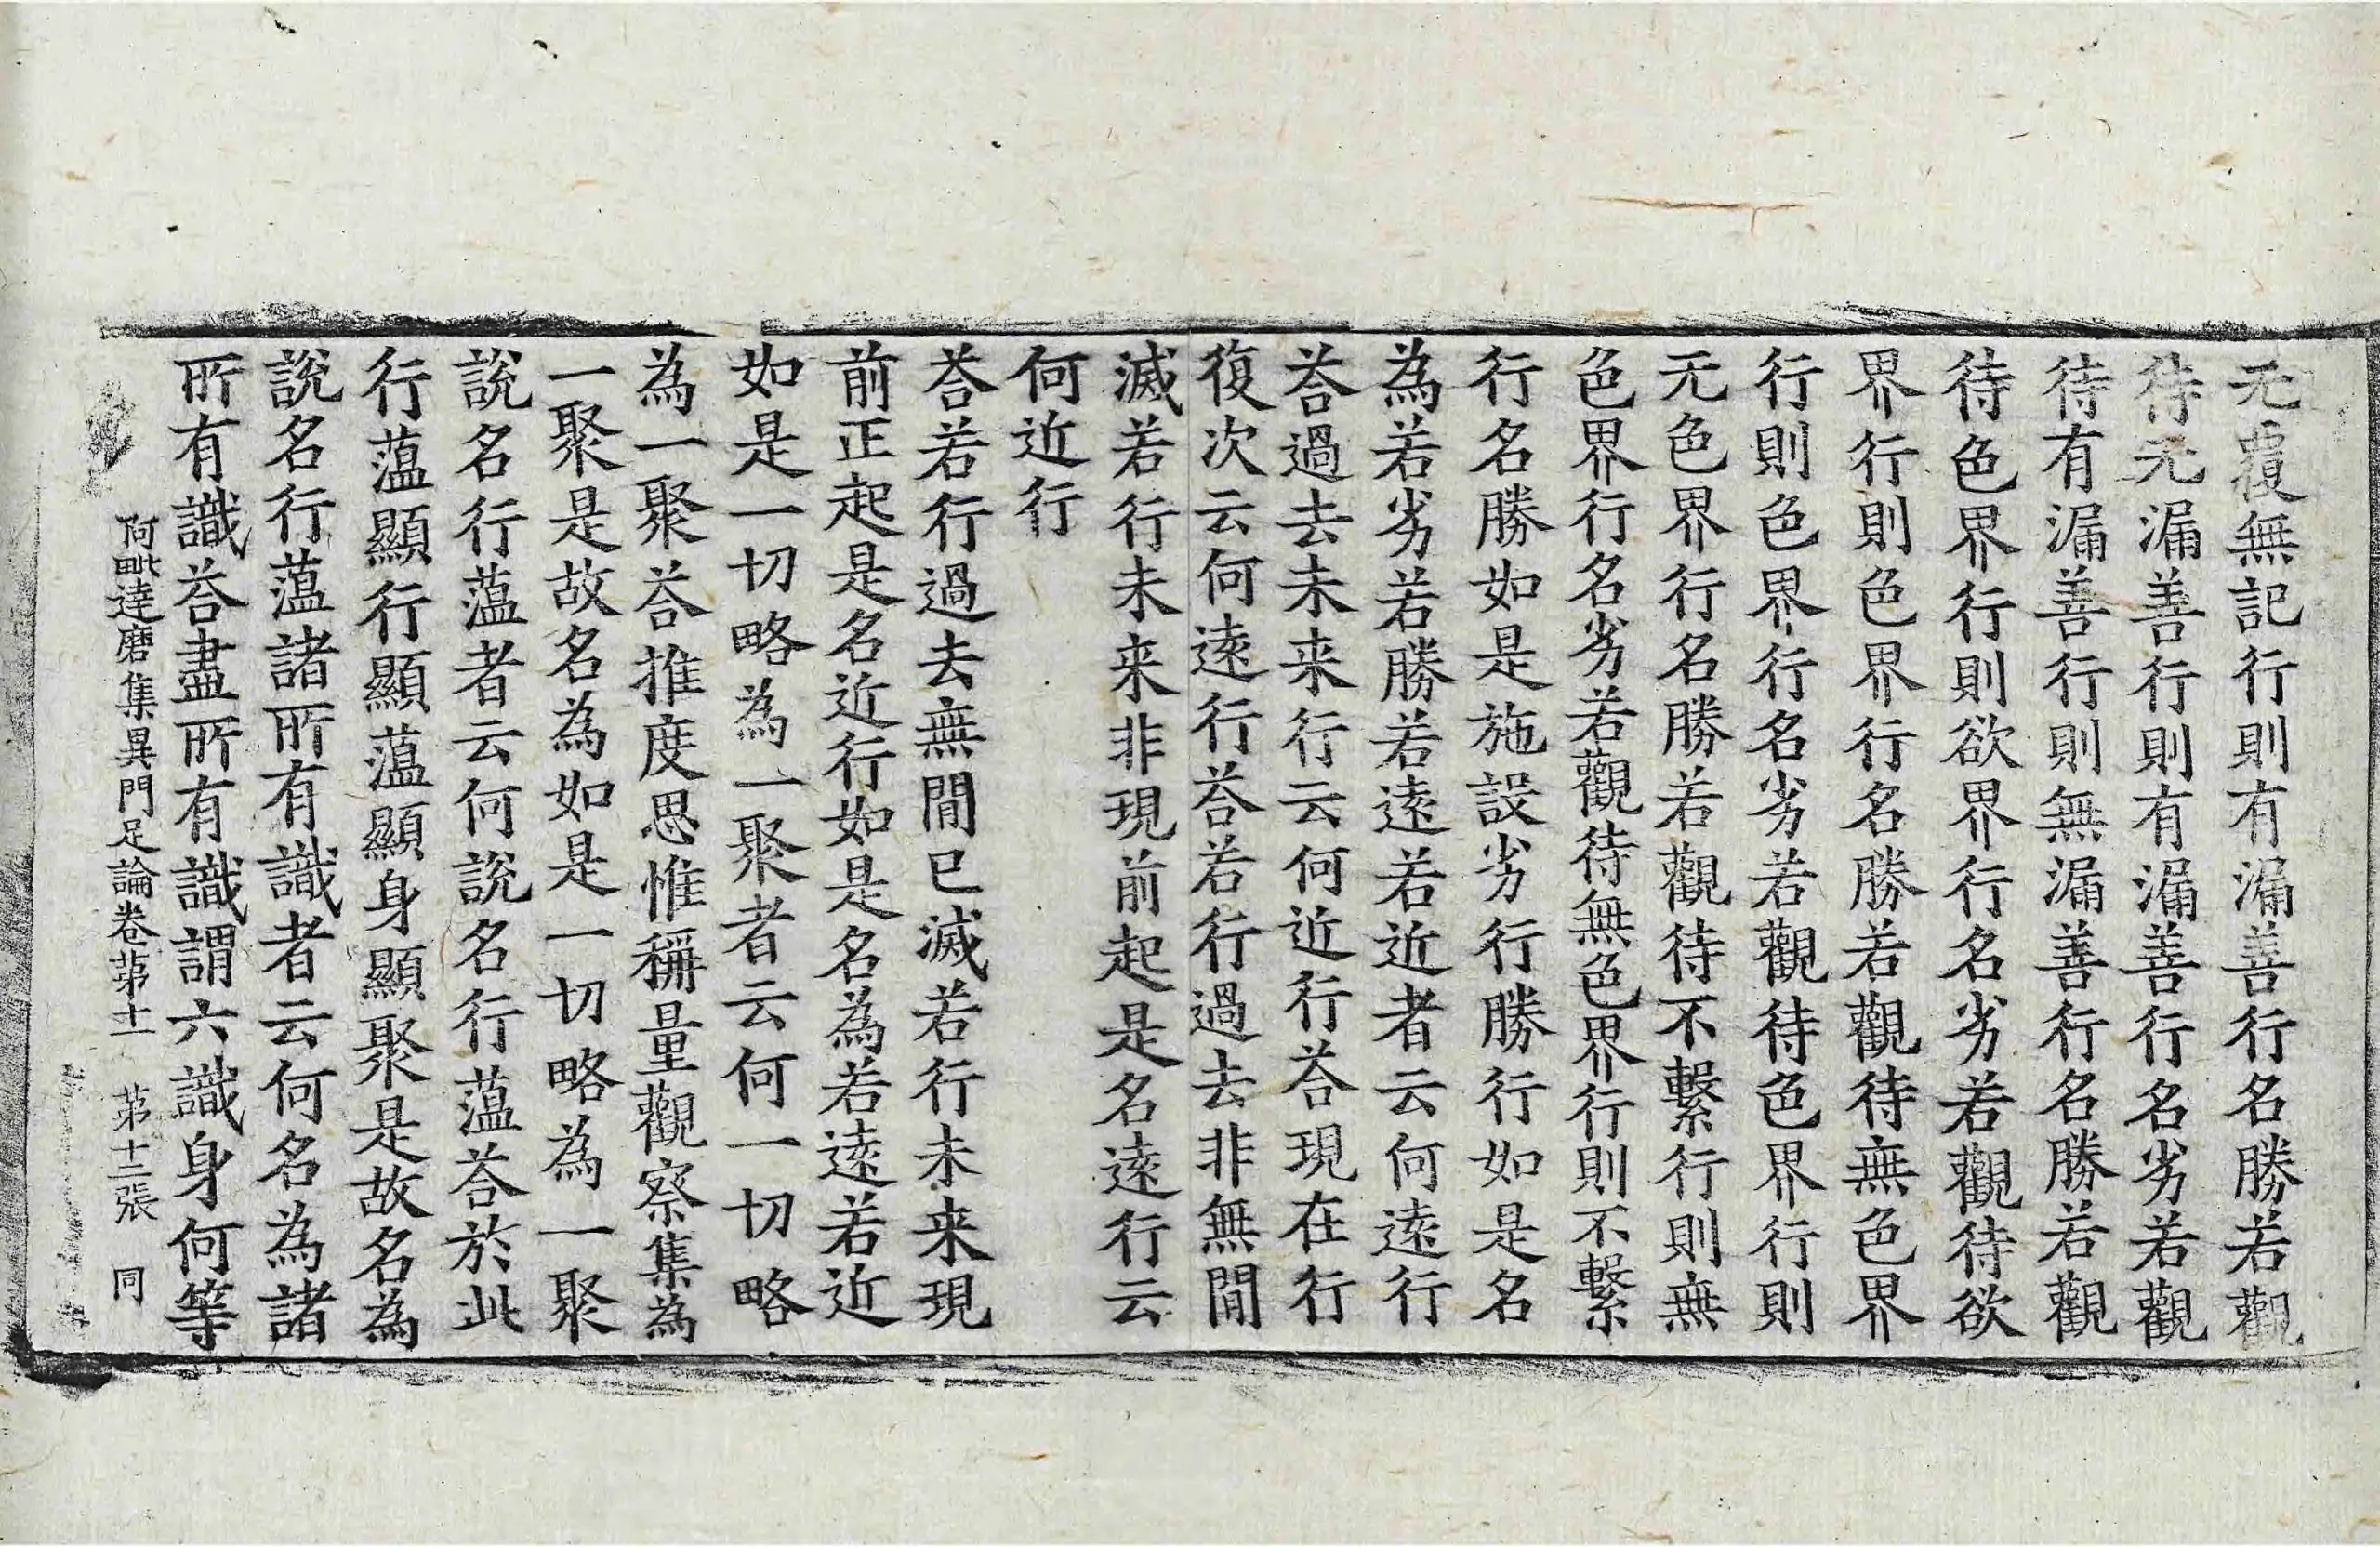 无覆無記行則有漏善行名勝若觀
待无漏善行則有漏善行名劣若觀
待有漏善行則無漏善行名勝若觀
待色界行則欲界行名劣若觀待欲
界行則色界行名勝若觀待無色界
行則色界行名劣若觀待色界行則
无色界行名勝若觀待不繫行則無
色界行名劣若觀待無色界行則不繫
行名勝如是施設劣行勝行如是名
為若劣若勝若遠若近者云何遠行
荅過去未来行云何近行荅現在行
復次云何遠行荅若行過去非無間
滅若行未来非現前起是名遠行云
何近行
荅若行過去無間已滅若行未来現
前正起是名近行如是名為若遠若近
如是一切略為一聚者云何一切略
為一聚荅推度思惟稱量觀察集為
一聚是故名為如是一切略為一聚
說名行薀者云何說名行薀荅於此
行薀顯行顯薀顯身顯聚是故名為
說名行薀諸所有識者云何名為諸
所有識荅盡所有識謂六識身何等
阿毗達磨集異門足論卷苐十一 苐十二張 同